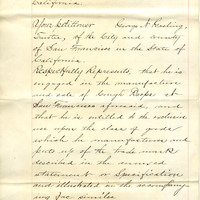 California
Your petitioner George A. Keeling,
Trustee, of the City and County
of San Francisco in the State of
California
Respectfully Represents, that he is
engaged in the manufacture
and sale of Cough Keeper at
San Francisco aforesaid, and
that he is entitled to the exclusive
use upon the class of goods
which he manufactures and
puts up of the trade mark
described in the annexed
statement or specification
and illustrated in the accompany-
ing fac similes